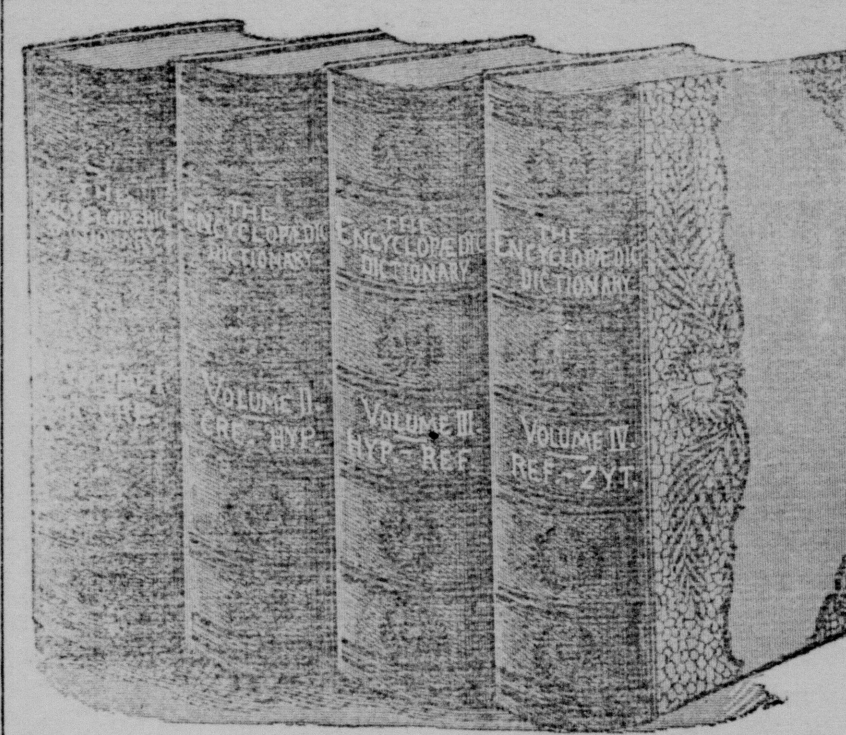 THE
ENCYCLOPÆDIC
DICTIONARY
CRE.
THE
ENCYCLOPÆDIC
DICTIONARY
VOLUME II.
CRE.-HYP.
THE
ENCYCLOPÆDIC
DICTIONARY
VOLUME III.
HYP.-REF.
THE
ENCYCLOPÆDIC
DICTIONARY
VOLUME IV.
REF.-ZYT.